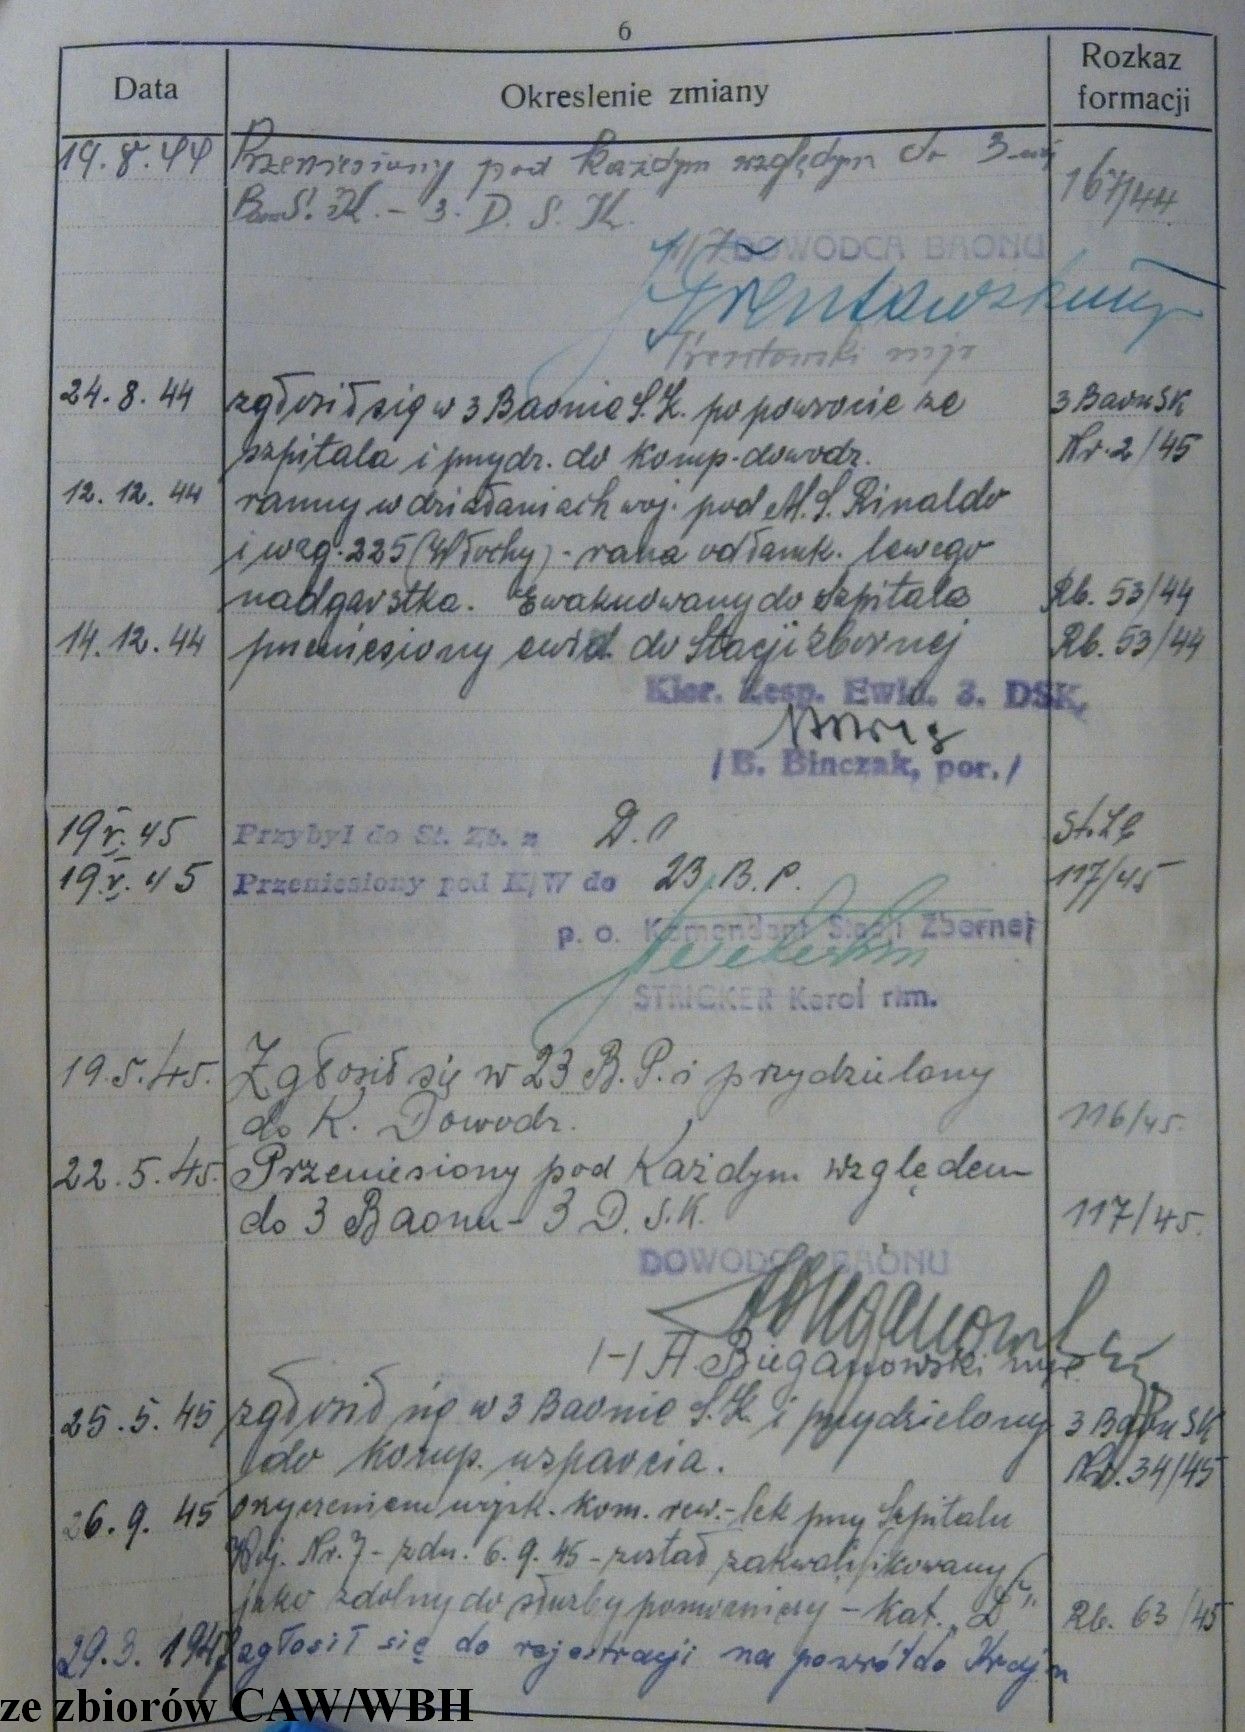 6
Data
Okreslenie zmiany
Rozkaz
formacji
19.8.44 Przeniesiony pod Każdym względym do 3-ciej
BaonS. K. - 3. D. S. K. 167/44
DOWÓDCA BAONU
Trentowski mjr
24.8.44 zgłosił się w 3 Baonie S.K. po powrocie ze 3 Baon SK
szpitala i przydz. do komp. dowodz. Nr. 2/45
12.12.44 ranny w działaniach woj. pod M. S. Rinaldo
i wzg. 225 (Włochy) - rana odłamk. lewego
nadgarstka. Ewakuowany do Szpitala Rb. 53/44
14.12.44 przeniesiony ewid. do Stacji Zbornej Rb. 53/44
Kier. Zesp. Ewid. 3. DSK,
/B. Binczak, por./
19.V.45 Przybył do St. Zb. z D.O St. Zb
19.V.45 Przeniesiony pod K/W do 23. B. P. 117/45
p. o. Komendant Stacji Zbornej
STRICKER Karol rtm.
19.5.45. Zgłosił się w 23 B. P. i przydzielony
do K. Dowodz. 116/45.
22.5.45. Przeniesiony pod Każdym względem
do 3 Baonu - 3 D. S.K. 117/45.
DOWÓDCA BAONU
/-/ A. Bieganowski mjr.
25.5.45 zgłosił się w 3 Baonie S.K. i przydzielony 3 Baon SK
do komp. wsparcia. Nr. 34/45
26.9.45 orzeczeniem wojsk. kom. rew.-lek przy Szpitalu
Woj. Nr. 7 - z dn. 6.9.45 - został zakwalifikowany
jako zdolny do służby pomocniczej - kat. „D" Rb. 63/45
29.3.1947 zgłosił się do rejestracji na powrót do Kraju
ze zbiorów CAW/WBH